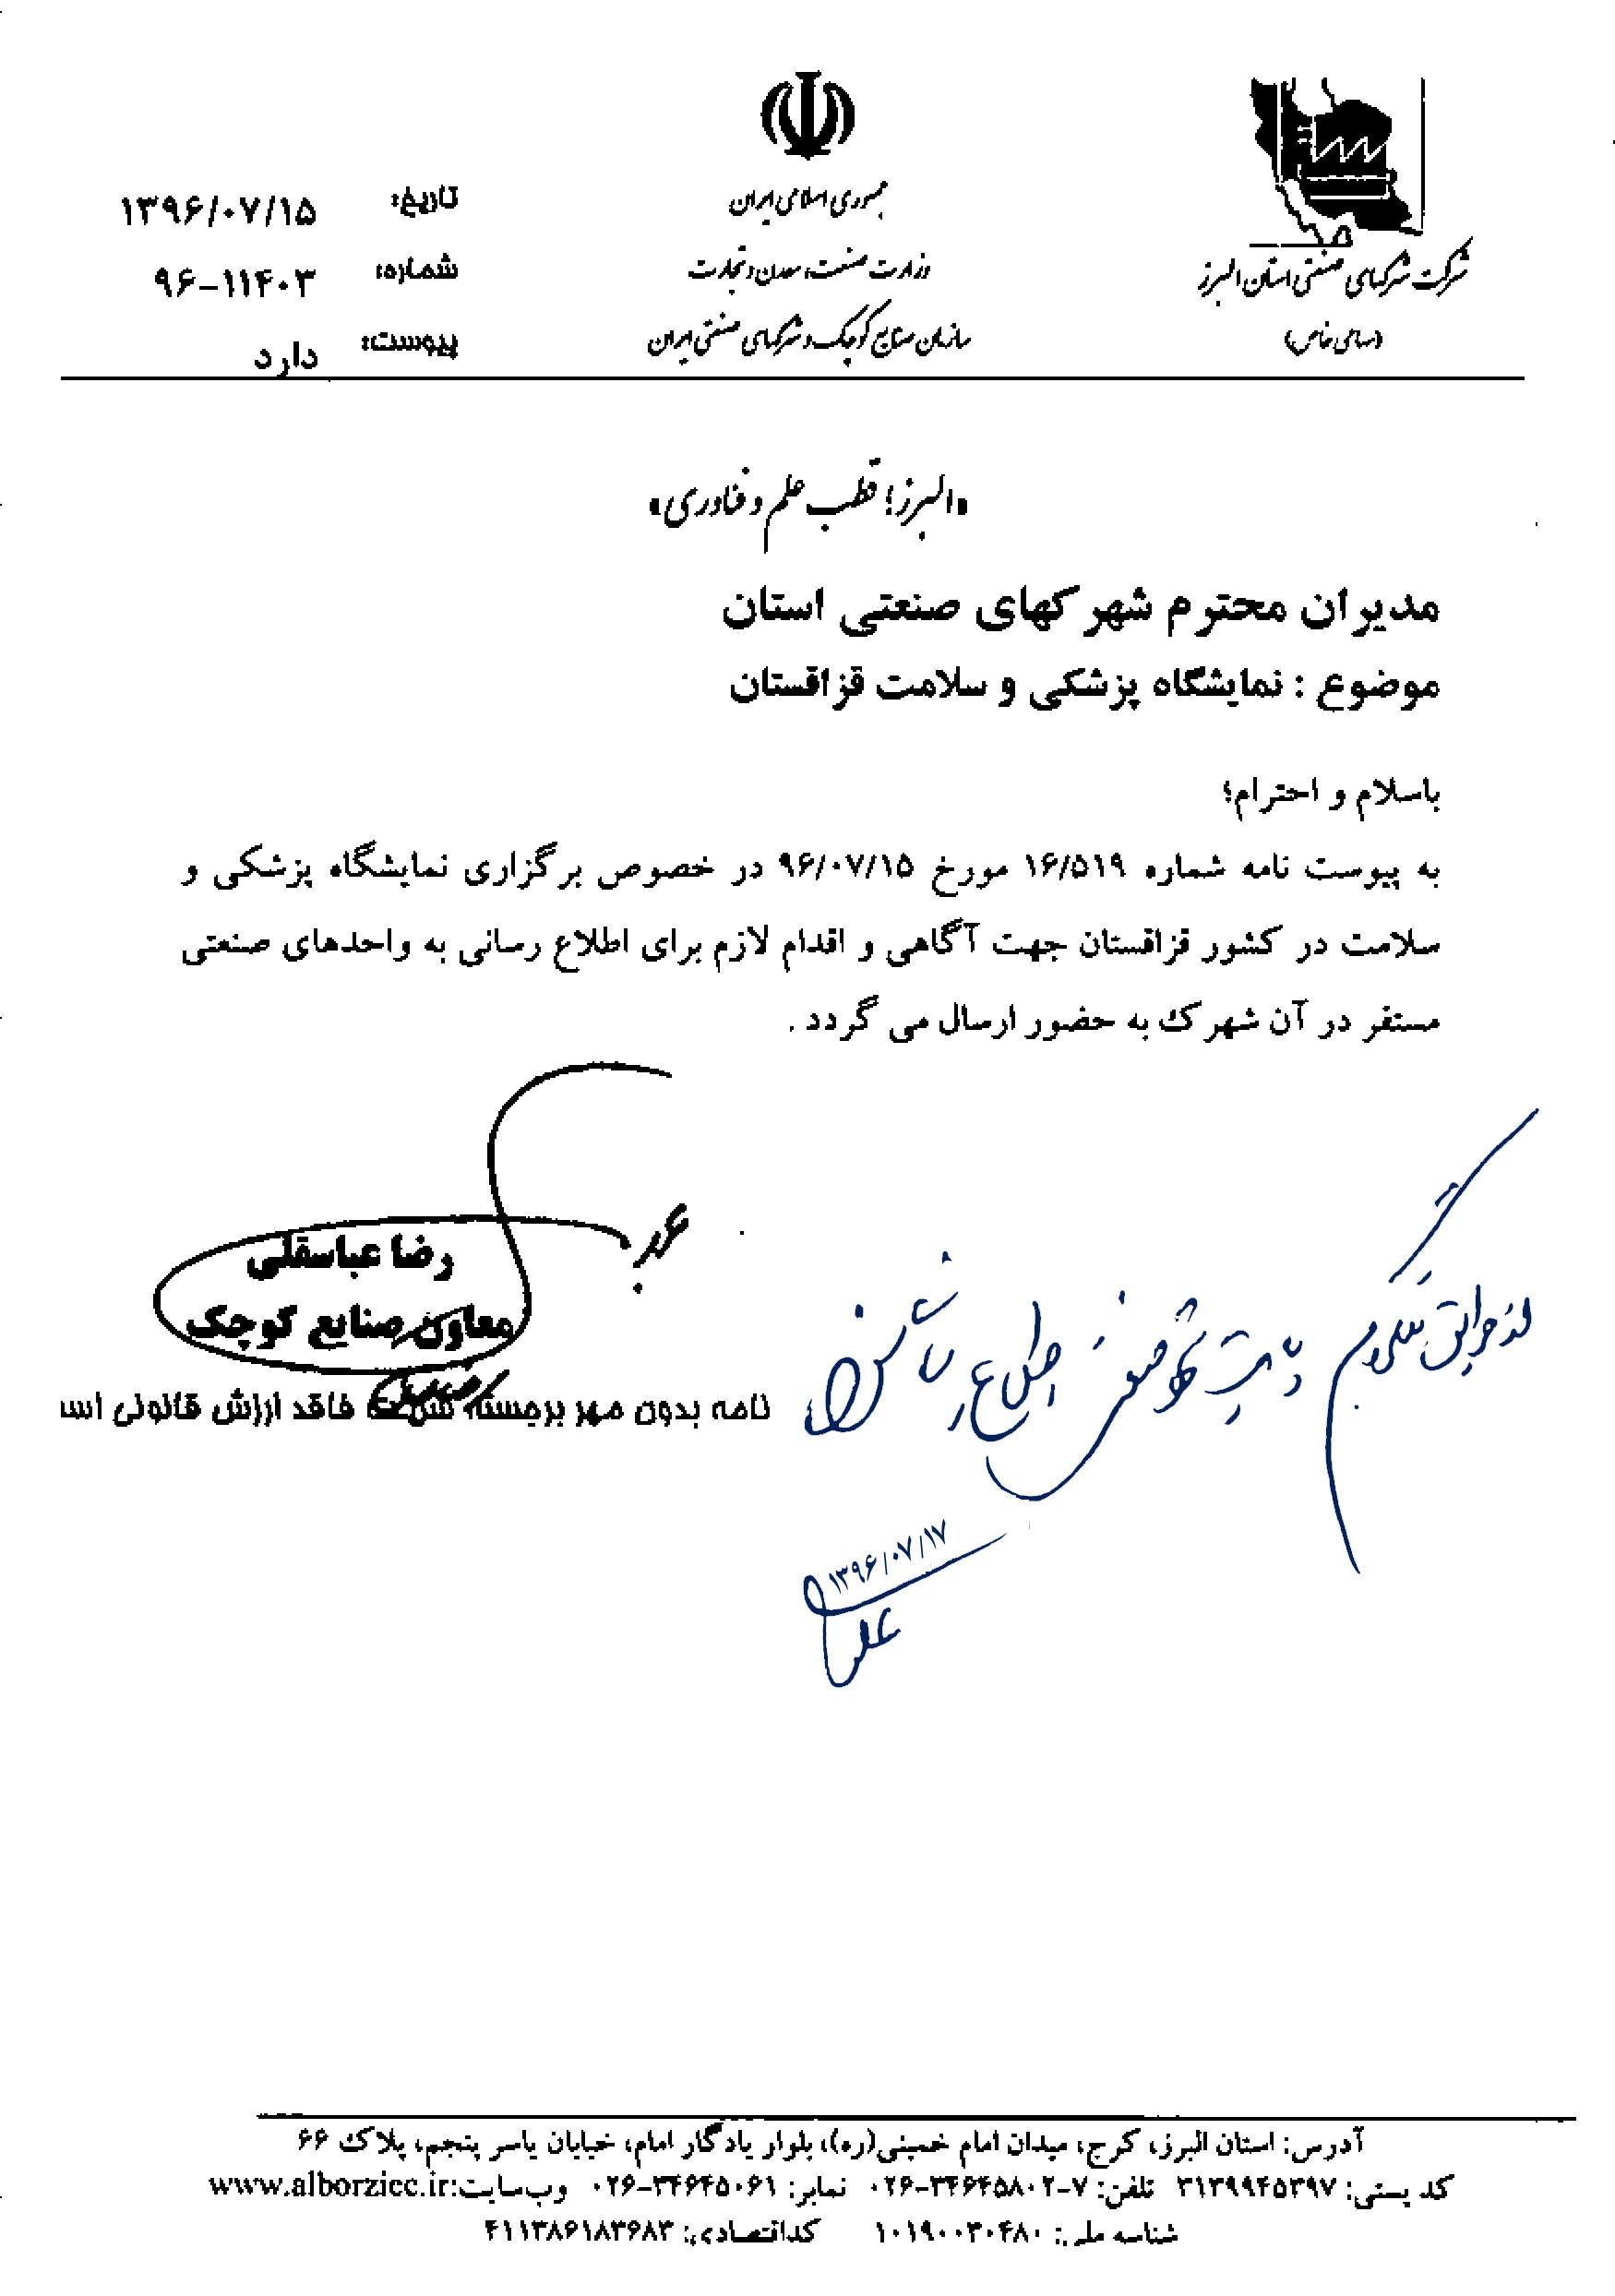 جمهوری اسلامی ایران
وزارت صنعت، معدن و تجارت
سازمان صنایع کوچک و شهرکهای صنعتی ایران
شرکت شهرکهای صنعتی استان البرز
(سهامی خاص)
تاریخ: ۱۳۹۶/۰۷/۱۵
شماره: ۹۶-۱۱۴۰۳
پیوست: دارد
«البرز؛ قطب علم و فناوری»
مدیران محترم شهرکهای صنعتی استان
موضوع : نمایشگاه پزشکی و سلامت قزاقستان
باسلام و احترام؛
به پیوست نامه شماره ۱۶/۵۱۹ مورخ ۹۶/۰۷/۱۵ در خصوص برگزاری نمایشگاه پزشکی و
سلامت در کشور قزاقستان جهت آگاهی و اقدام لازم برای اطلاع رسانی به واحدهای صنعتی
مستقر در آن شهرک به حضور ارسال می گردد .
رضا عباسقلی
معاون صنایع کوچک
نامه بدون مهر برجسته شرکت فاقد ارزش قانونی اس
از طریق تلگرام
۱۳۹۶/۰۷/۱۷
آدرس: استان البرز، کرج، میدان امام خمینی(ره)، بلوار یادگار امام، خیابان یاسر پنجم، پلاک ۶۶
کد پستی: ۳۱۳۹۹۴۵۳۹۷ تلفن: ۷-۰۲۶-۳۴۶۴۵۸۰۲ نمابر: ۰۲۶-۳۴۶۴۵۰۶۱ وب‌سایت: www.alborzicc.ir
شناسه ملی: ۱۰۱۹۰۰۳۰۴۸۰ کداقتصادی: ۴۱۱۳۸۶۱۸۳۶۸۳